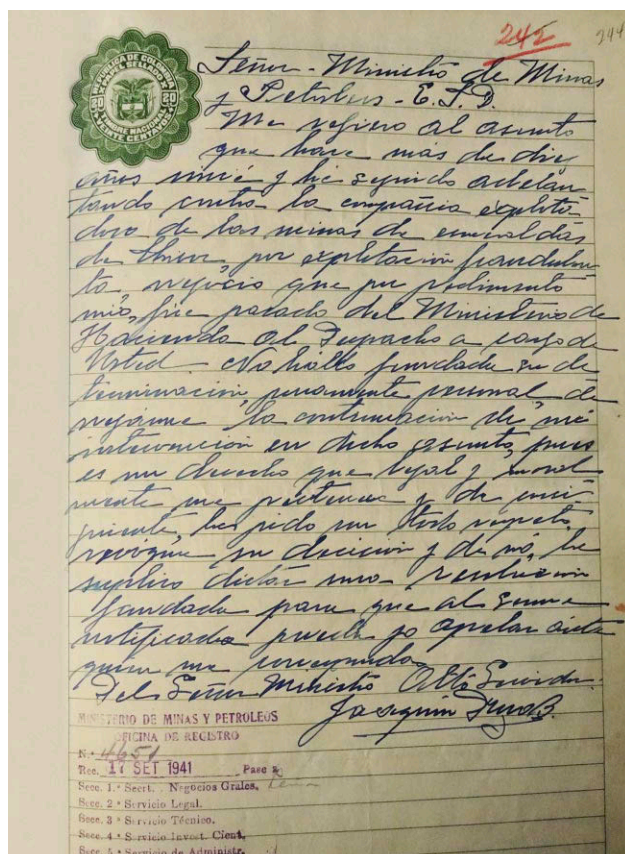 242
244
REPUBLICA DE COLOMBIA
PAPEL SELLADO
20 20
TIMBRE NACIONAL
VEINTE CENTAVOS
Señor - Ministro de Minas
y Petroleos - E. S. D.
Me refiero al asunto
que hace más de diez
años inicié y he seguido adelan
tando contra la compañia explota
dora de las minas de esmeraldas
de Chivor, por explotación fraudulen
ta negocio que por pedimento
mio, fue pasado del Ministerio de
Hacienda al Despacho a cargo de
Usted. No hallo fundada su de
terminación, puramente personal de
negarme la continuación de mi
intervencion en dicho asunto, pues
es un derecho que legal y moral
mente me pertenece y de consi
guiente, les pido con todo respeto,
revoque su decision y de nó, le
suplico dictar una resolucion
fundada para que al serme
notificada pueda yo apelar ante
quien me corresponda.
Del Señor Ministro Atto Servidor.
Joaquin B.
MINISTERIO DE MINAS Y PETROLEOS
OFICINA DE REGISTRO
N.º 4651
Rec. 17 SET 1941 Pase a
Secc. 1.ª Secrt. Negocios Grales.
Secc. 2.ª Servicio Legal.
Secc. 3.ª Servicio Técnico.
Secc. 4.ª Servicio Invest. Cient.
Secc. 5.ª Servicio de Administr.